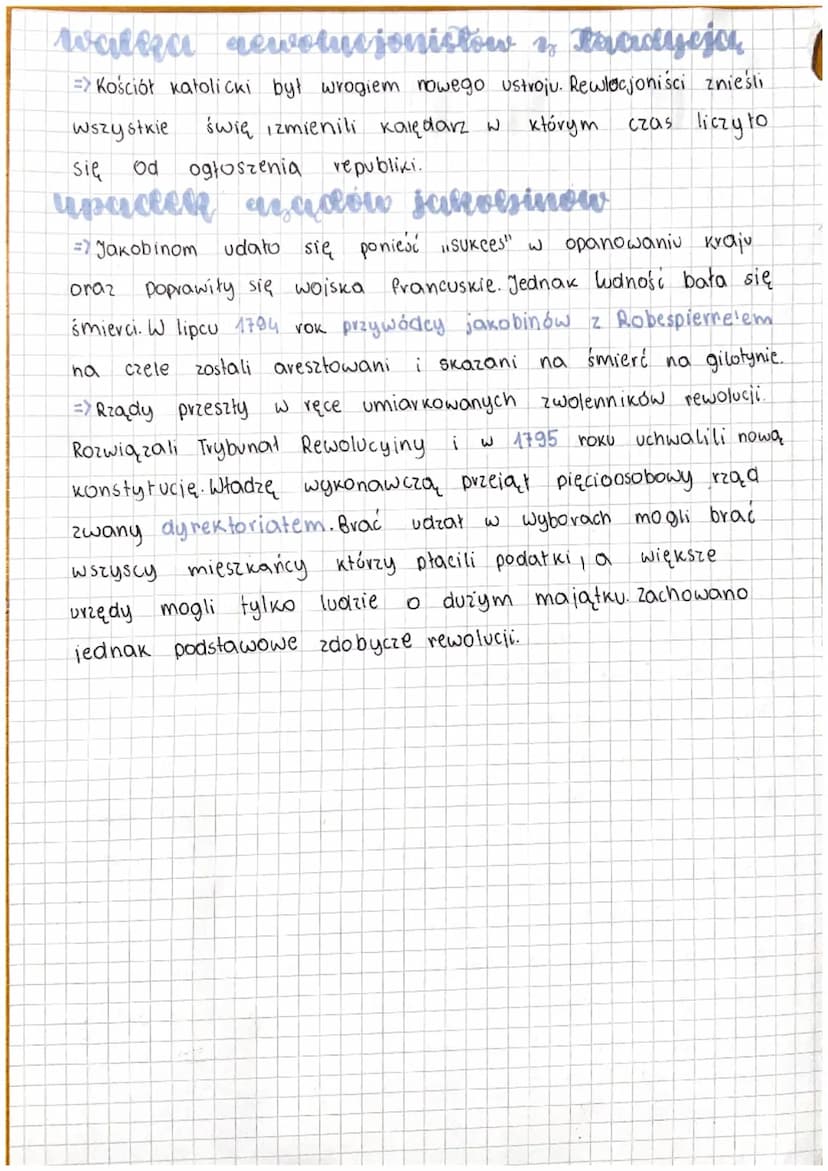 walka rewolucjonistów z Tradycją
=> Kościół katolicki był wrogiem nowego ustroju. Rewlocjoniści znieśli
wszystkie świę izmienili kalędarz w którym czas liczyło
się od ogłoszenia republiki.
upadek rządów jakobinów
=> Jakobinom udało się ponieść „sukces" w opanowaniu kraju
oraz poprawiły się wojska francuskie. Jednak ludność bała się
śmierci. W lipcu 1794 rok przywódcy jakobinów z Robespierre'em
na czele zostali aresztowani i skazani na śmierć na gilotynie.
=> Rządy przeszły w ręce umiarkowanych zwolenników rewolucji.
Rozwiązali Trybunał Rewolucyjny i w 1795 roku uchwalili nową
konstytucję. Władzę wykonawczą przejął pięcioosobowy rząd
zwany dyrektoriatem. Brać udział w wyborach mogli brać
wszyscy mieszkańcy którzy płacili podatki, a większe
urzędy mogli tylko ludzie o dużym majątku. Zachowano
jednak podstawowe zdobycze rewolucji.